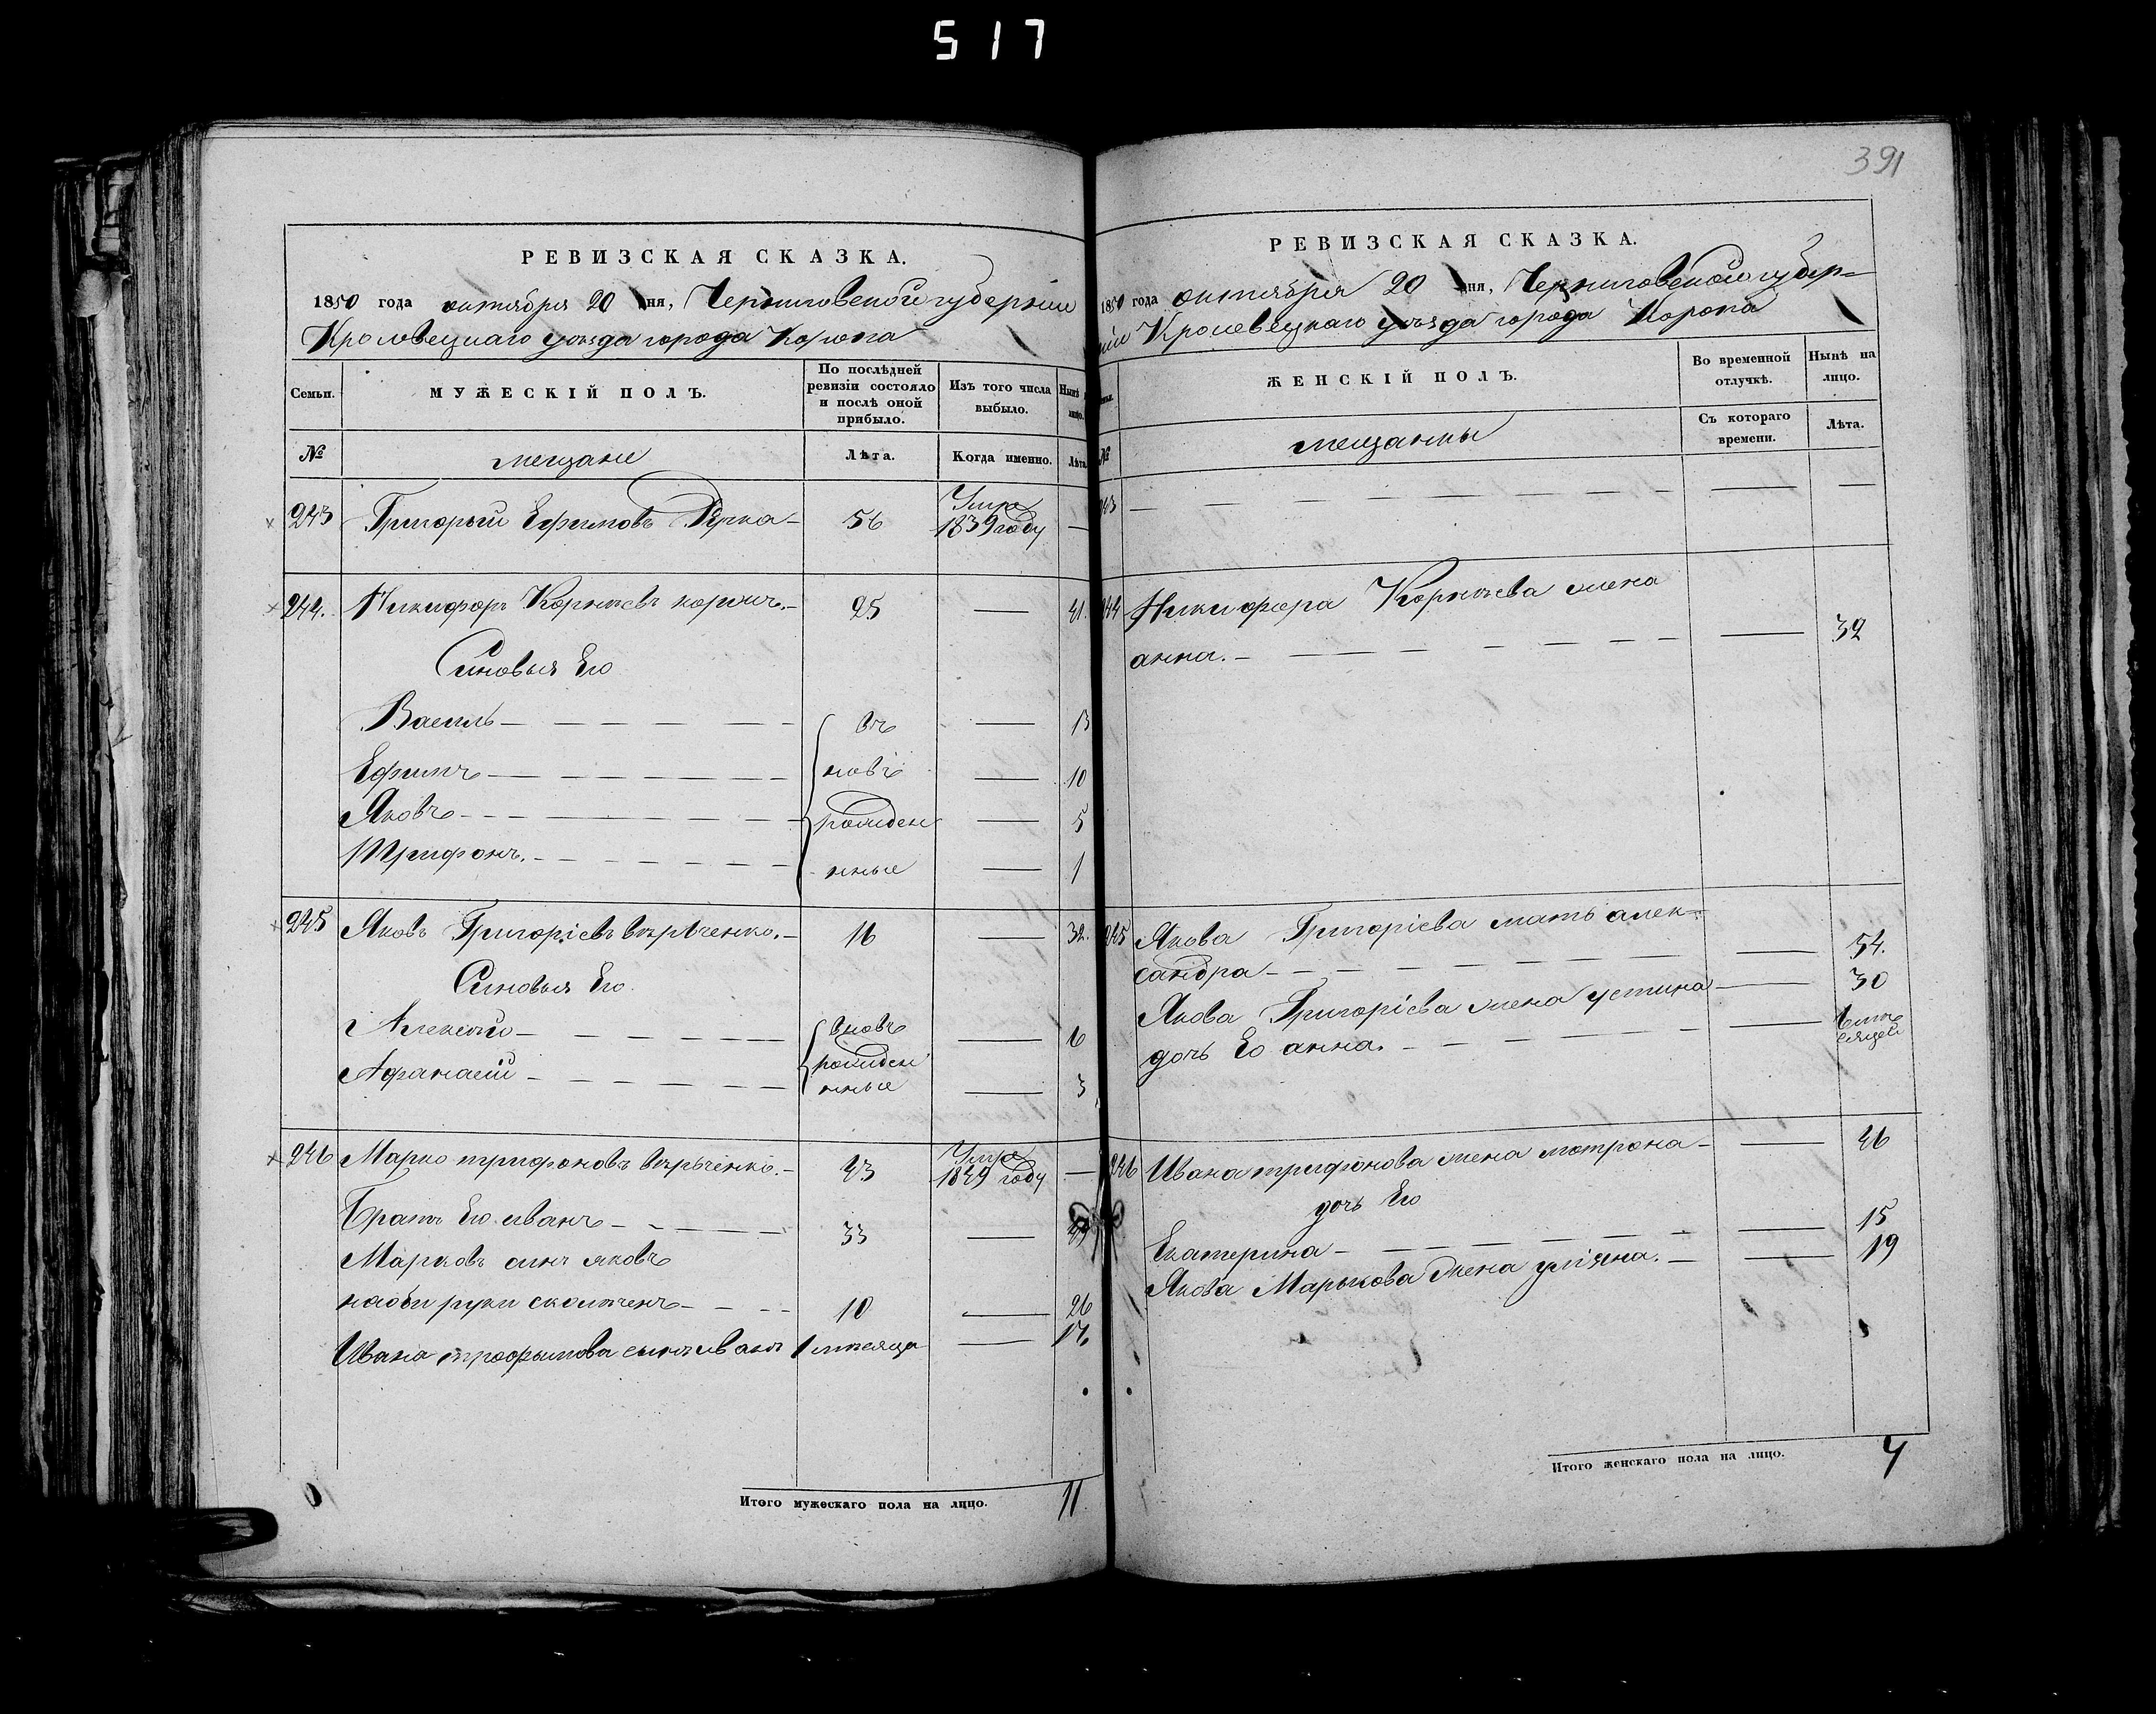 517
391
РЕВИЗСКАЯ СКАЗКА.
1850 года октября 20 дня, Черниговской губерніи
Кролевецкаго уѣзда города Коропа
Семьи.
МУЖЕСКІЙ ПОЛЪ.
По послѣдней ревизіи состояло и послѣ оной прибыло.
Изъ того числа выбыло.
Нынѣ лицо.
№
мещане
Лѣта.
Когда именно.
Лѣта
243 Григорый Ефимовъ 56 Умре 1839 году —
244. Никифоръ Корнѣевъ 25 — 41.
Сыновья Его
Василь — въ — 13
Ефимъ — новѣ — 10
Яковъ — рожден — 5
Трифонъ. — нные — 1
245 Яковъ Григоріевъ вырѣченко. — 16 — 32.
Сыновья Его.
Алексѣй — вновь — 6
рожден
Афанасій — нные — 3
246 Марко трифоновъ вырѣченко. — 43 Умре 1849 году —
Братъ Его иванъ — 33 — 49
Марковъ синъ яковъ
наоби руки — 10 — 26
Ивана трофымова сынъ иванъ 1 мѣсяца — 17
Итого мужескаго пола на лицо. 11.
РЕВИЗСКАЯ СКАЗКА.
1850 года октября 20 дня, Черниговской губер=
ніи Кролевецкаго уѣзда города Коропа
ЖЕНСКІЙ ПОЛЪ.
Во временной отлучкѣ.
Нынѣ на лицо.
№
мещанки
Съ котораго времени.
Лѣта.
243 — — —
244 Никифора Корнѣева жена
анна. — — 32
245 Якова Григоріева мать алек=
сандра — — 54.
Якова Григоріева жена устина — 30
дочь Его анна. — — 6 мѣсяцей
246 Ивана трифонова жена мотрона — — 46
дочь Его
Екатерина — — 15
Якова Марькова жена уліяна. — — 19
Итого женскаго пола на лицо. 7